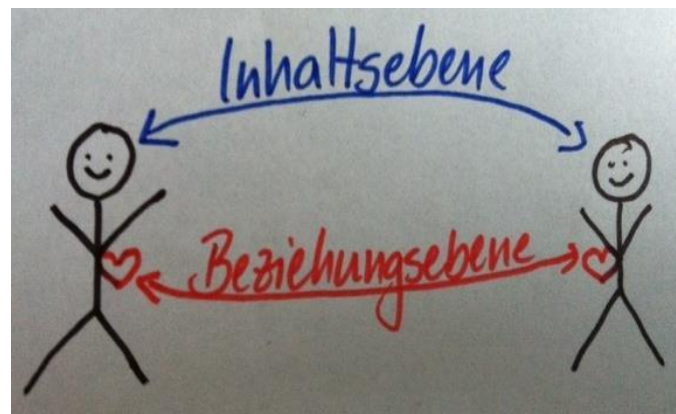 Inhaltsebene
Beziehungsebene